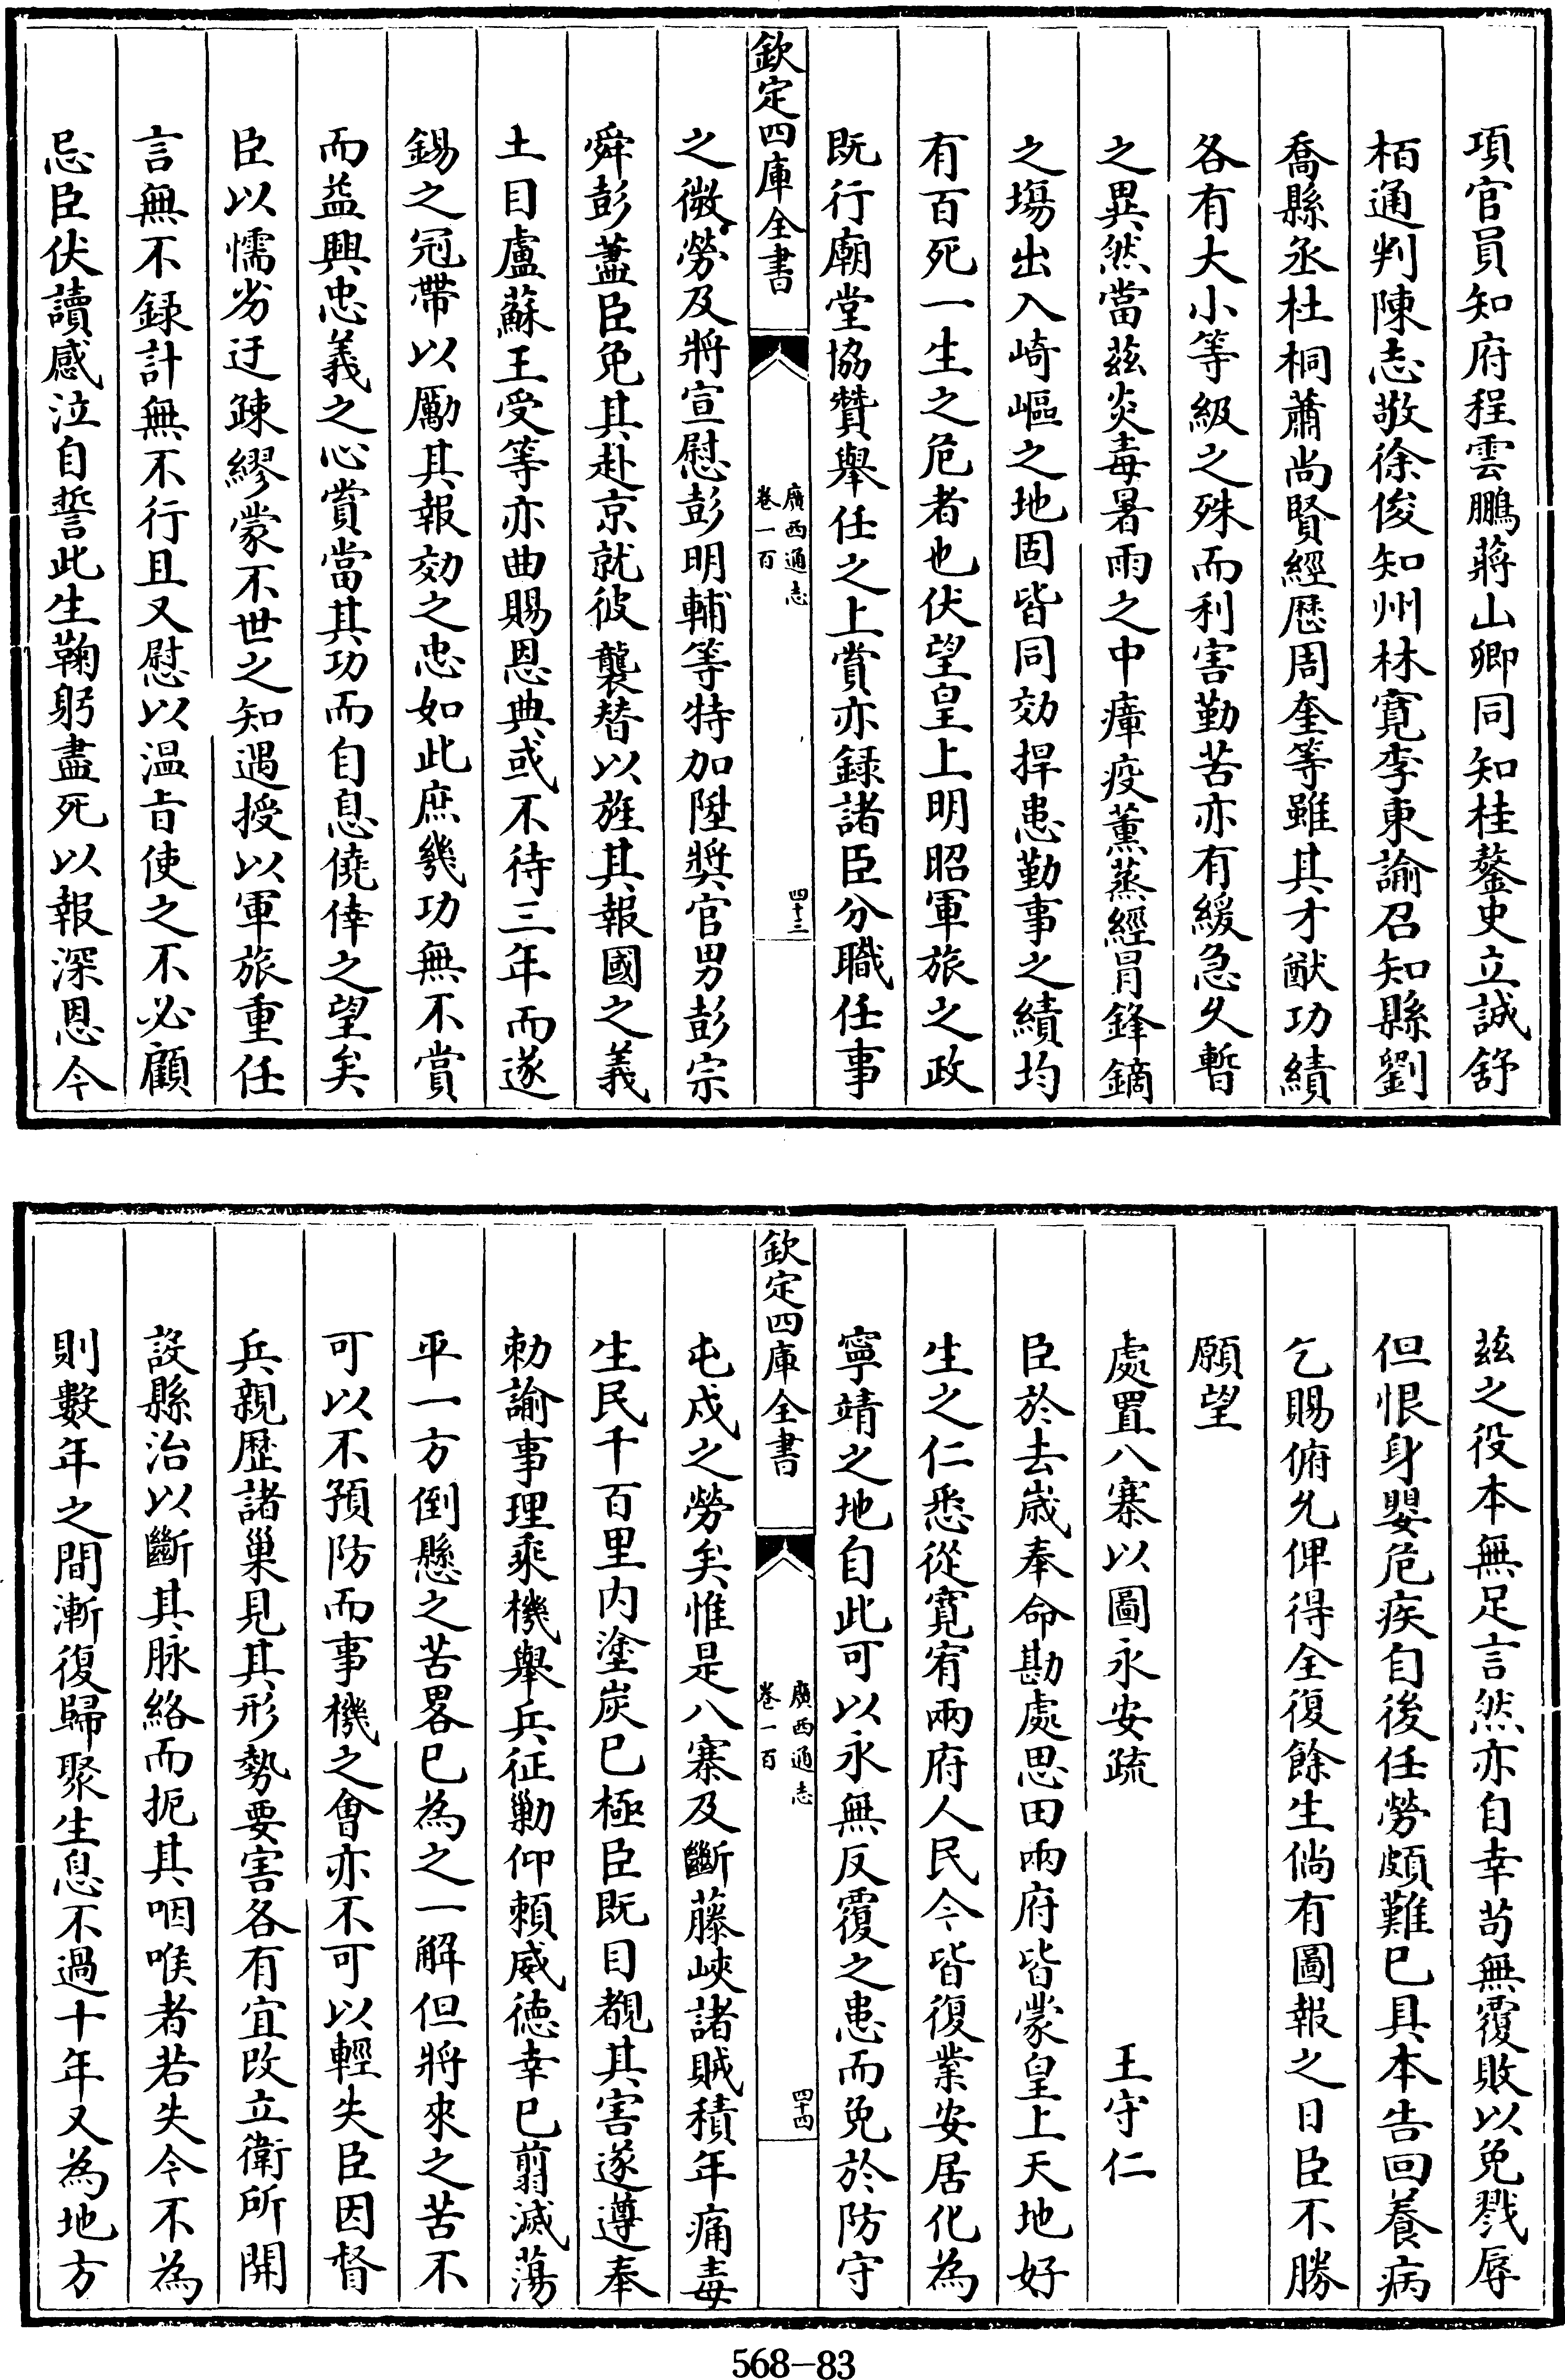 項官員知府程雲鵬蔣山卿同知桂鏊史立誠舒
栢通判陳志敬徐俊知州林寛李東諭召知縣劉
喬縣丞杜桐蕭尚賢經歴周奎等雖其才猷功績
各有大小等級之殊而利害勤苦亦有緩急久暫
之異然當兹炎毒暑雨之中瘴疫薰蒸經冒鋒鏑
之場出入崎嶇之地固皆同効捍患勤事之績均
有百死一生之危者也伏望皇上明昭軍旅之政
既行廟堂協贊舉任之上賞亦録諸臣分職任事
欽定四庫全書
廣西通志
卷一百
四十三
之微勞及將宣慰彭明輔等特加陞奬官男彭宗
舜彭藎臣免其赴京就彼襲替以旌其報國之義
土目盧蘇王受等亦曲賜恩典或不待三年而遂
錫之冠帶以勵其報効之忠如此庶幾功無不賞
而益興忠義之心賞當其功而自息僥倖之望矣
臣以懦劣迂疎繆蒙不世之知遇授以軍旅重任
言無不録計無不行且又慰以温㫖使之不必顧
忌臣伏讀感泣自誓此生鞠躬盡死以報深恩今
兹之役本無足言然亦自幸苟無覆敗以免戮辱
但恨身嬰危疾自後任勞頗難已具本告回養病
乞賜俯允俾得全復餘生倘有圖報之日臣不勝
願望
處置八寨以圖永安疏 王守仁
臣於去歳奉命勘處思田兩府皆蒙皇上天地好
生之仁悉從寛宥兩府人民今皆復業安居化為
寧靖之地自此可以永無反覆之患而免於防守
欽定四庫全書
廣西通志
卷一百
四十四
屯戍之勞矣惟是八寨及斷藤峽諸賊積年痡毒
生民千百里内塗炭已極臣既目覩其害遂遵奉
勅諭事理乘機舉兵征勦仰頼威德幸已翦滅蕩
平一方倒懸之苦畧已為之一解但將來之苦不
可以不預防而事機之會亦不可以輕失臣因督
兵親歴諸巢見其形勢要害各有宜改立衛所開
設縣治以斷其脉絡而扼其咽喉者若失今不為
則數年之間漸復歸聚生息不過十年又為地方
568-83